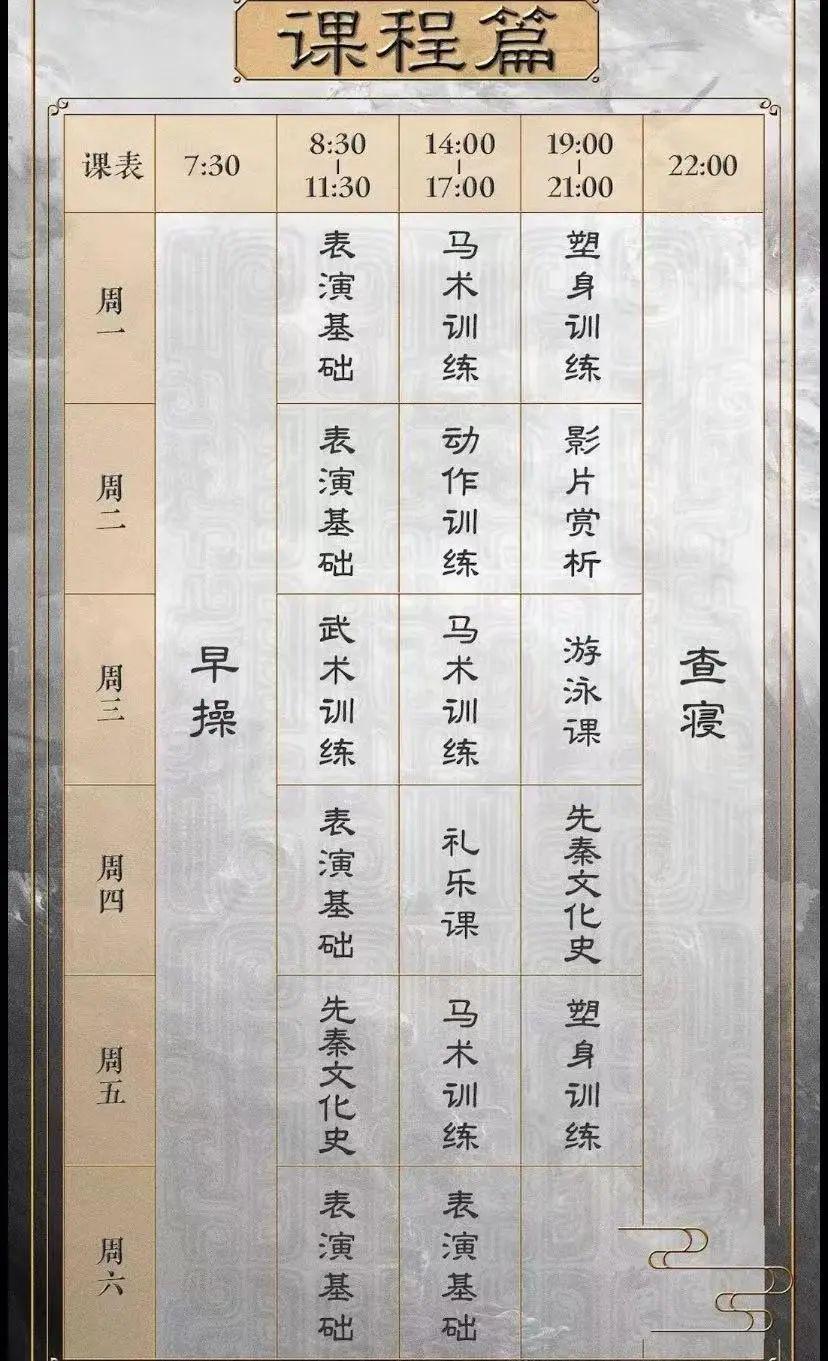 课程篇
课表 7:30 8:30-11:30 14:00-17:00 19:00-21:00 22:00
周一 表演基础 马术训练 塑身训练
周二 表演基础 动作训练 影片赏析
周三 早操 武术训练 马术训练 游泳课 查寝
周四 表演基础 礼乐课 先秦文化史
周五 先秦文化史 马术训练 塑身训练
周六 表演基础 表演基础